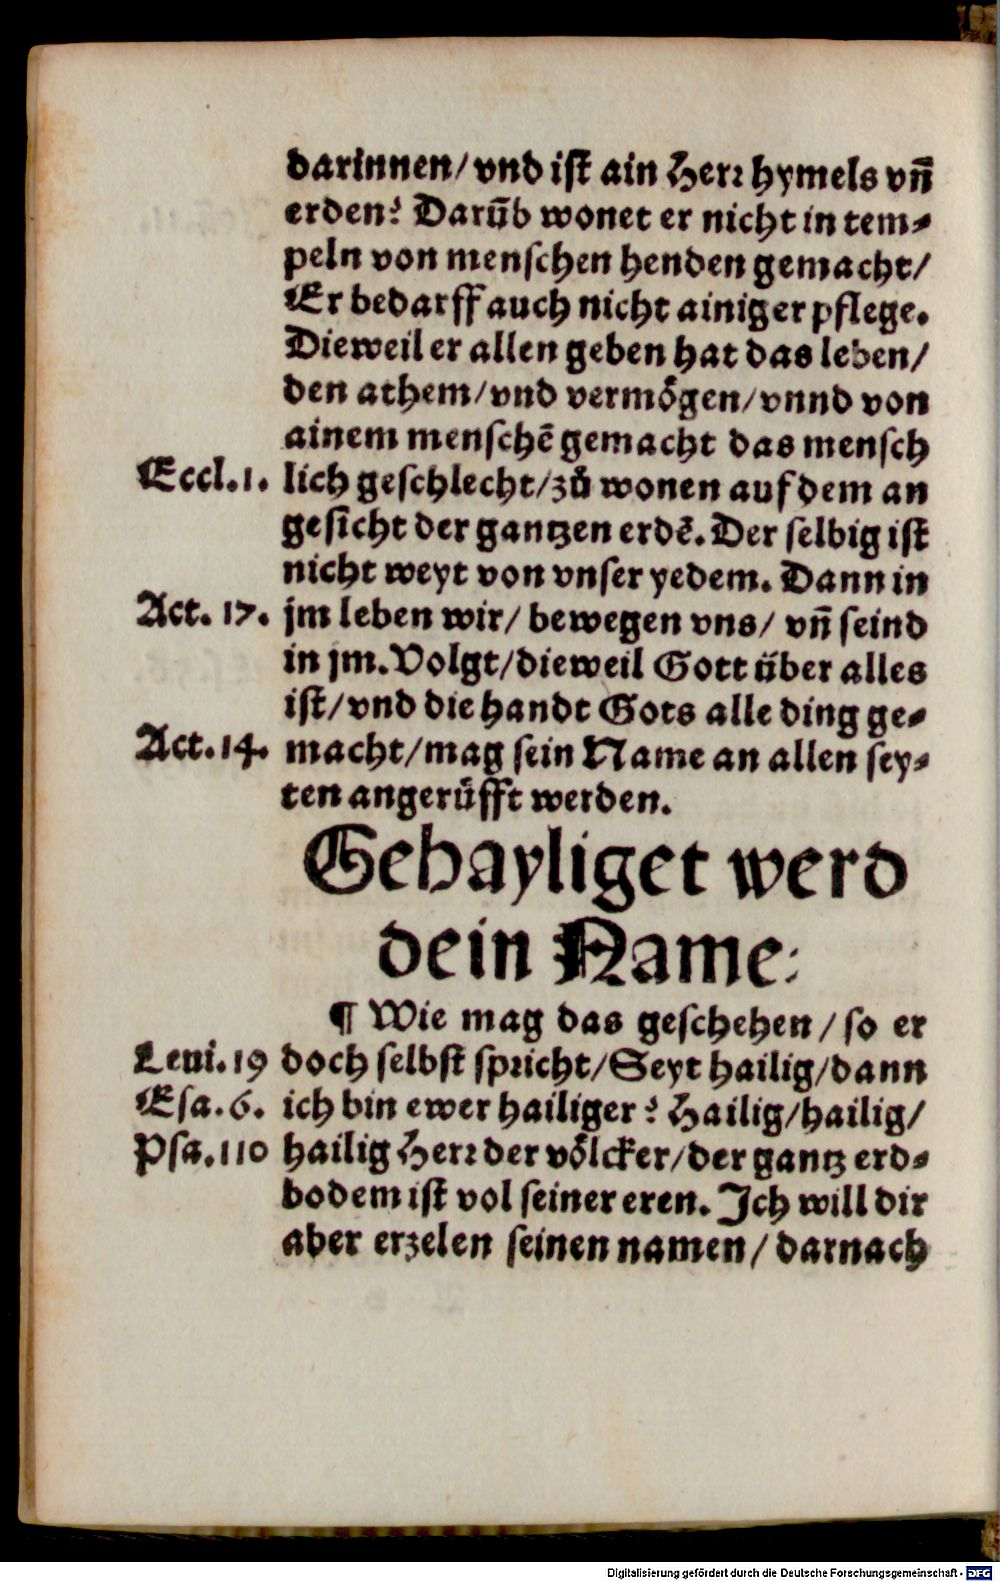 darinnen/ vnd ist ain Herr hymels vn̄
erden? Darūb wonet er nicht in tem⸗
peln von menschen henden gemacht/
Er bedarff auch nicht ainiger pflege.
Dieweil er allen geben hat das leben/
den athem/ vnd vermoͤgen/ vnnd von
ainem menschē gemacht das mensch
Eccl.1. lich geschlecht/ zů wonen auf dem an
gesicht der gantzen erdē. Der selbig ist
nicht weyt von vnser yedem. Dann in
Act. 17. jm leben wir/ bewegen vns/ vn̄ seind
in jm. Volgt/ dieweil Gott uͤber alles
ist/ vnd die handt Gots alle ding ge⸗
Act. 14. macht/ mag sein Name an allen sey⸗
ten angeruͤfft werden.
Gehayliget werd
dein Name:
¶ Wie mag das geschehen/ so er
Leui. 19 doch selbst spricht/ Seyt hailig/ dann
Esa. 6. ich bin ewer hailiger? Hailig/ hailig/
Psa. 110 hailig Herr der voͤlcker/ der gantz erd⸗
bodem ist vol seiner eren. Ich will dir
aber erzelen seinen namen/ darnach
Digitalisierung gefördert durch die Deutsche Forschungsgemeinschaft - DFG